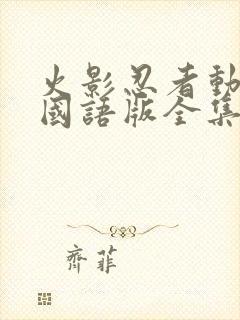 火影忍者動
國語版全集
齊菲